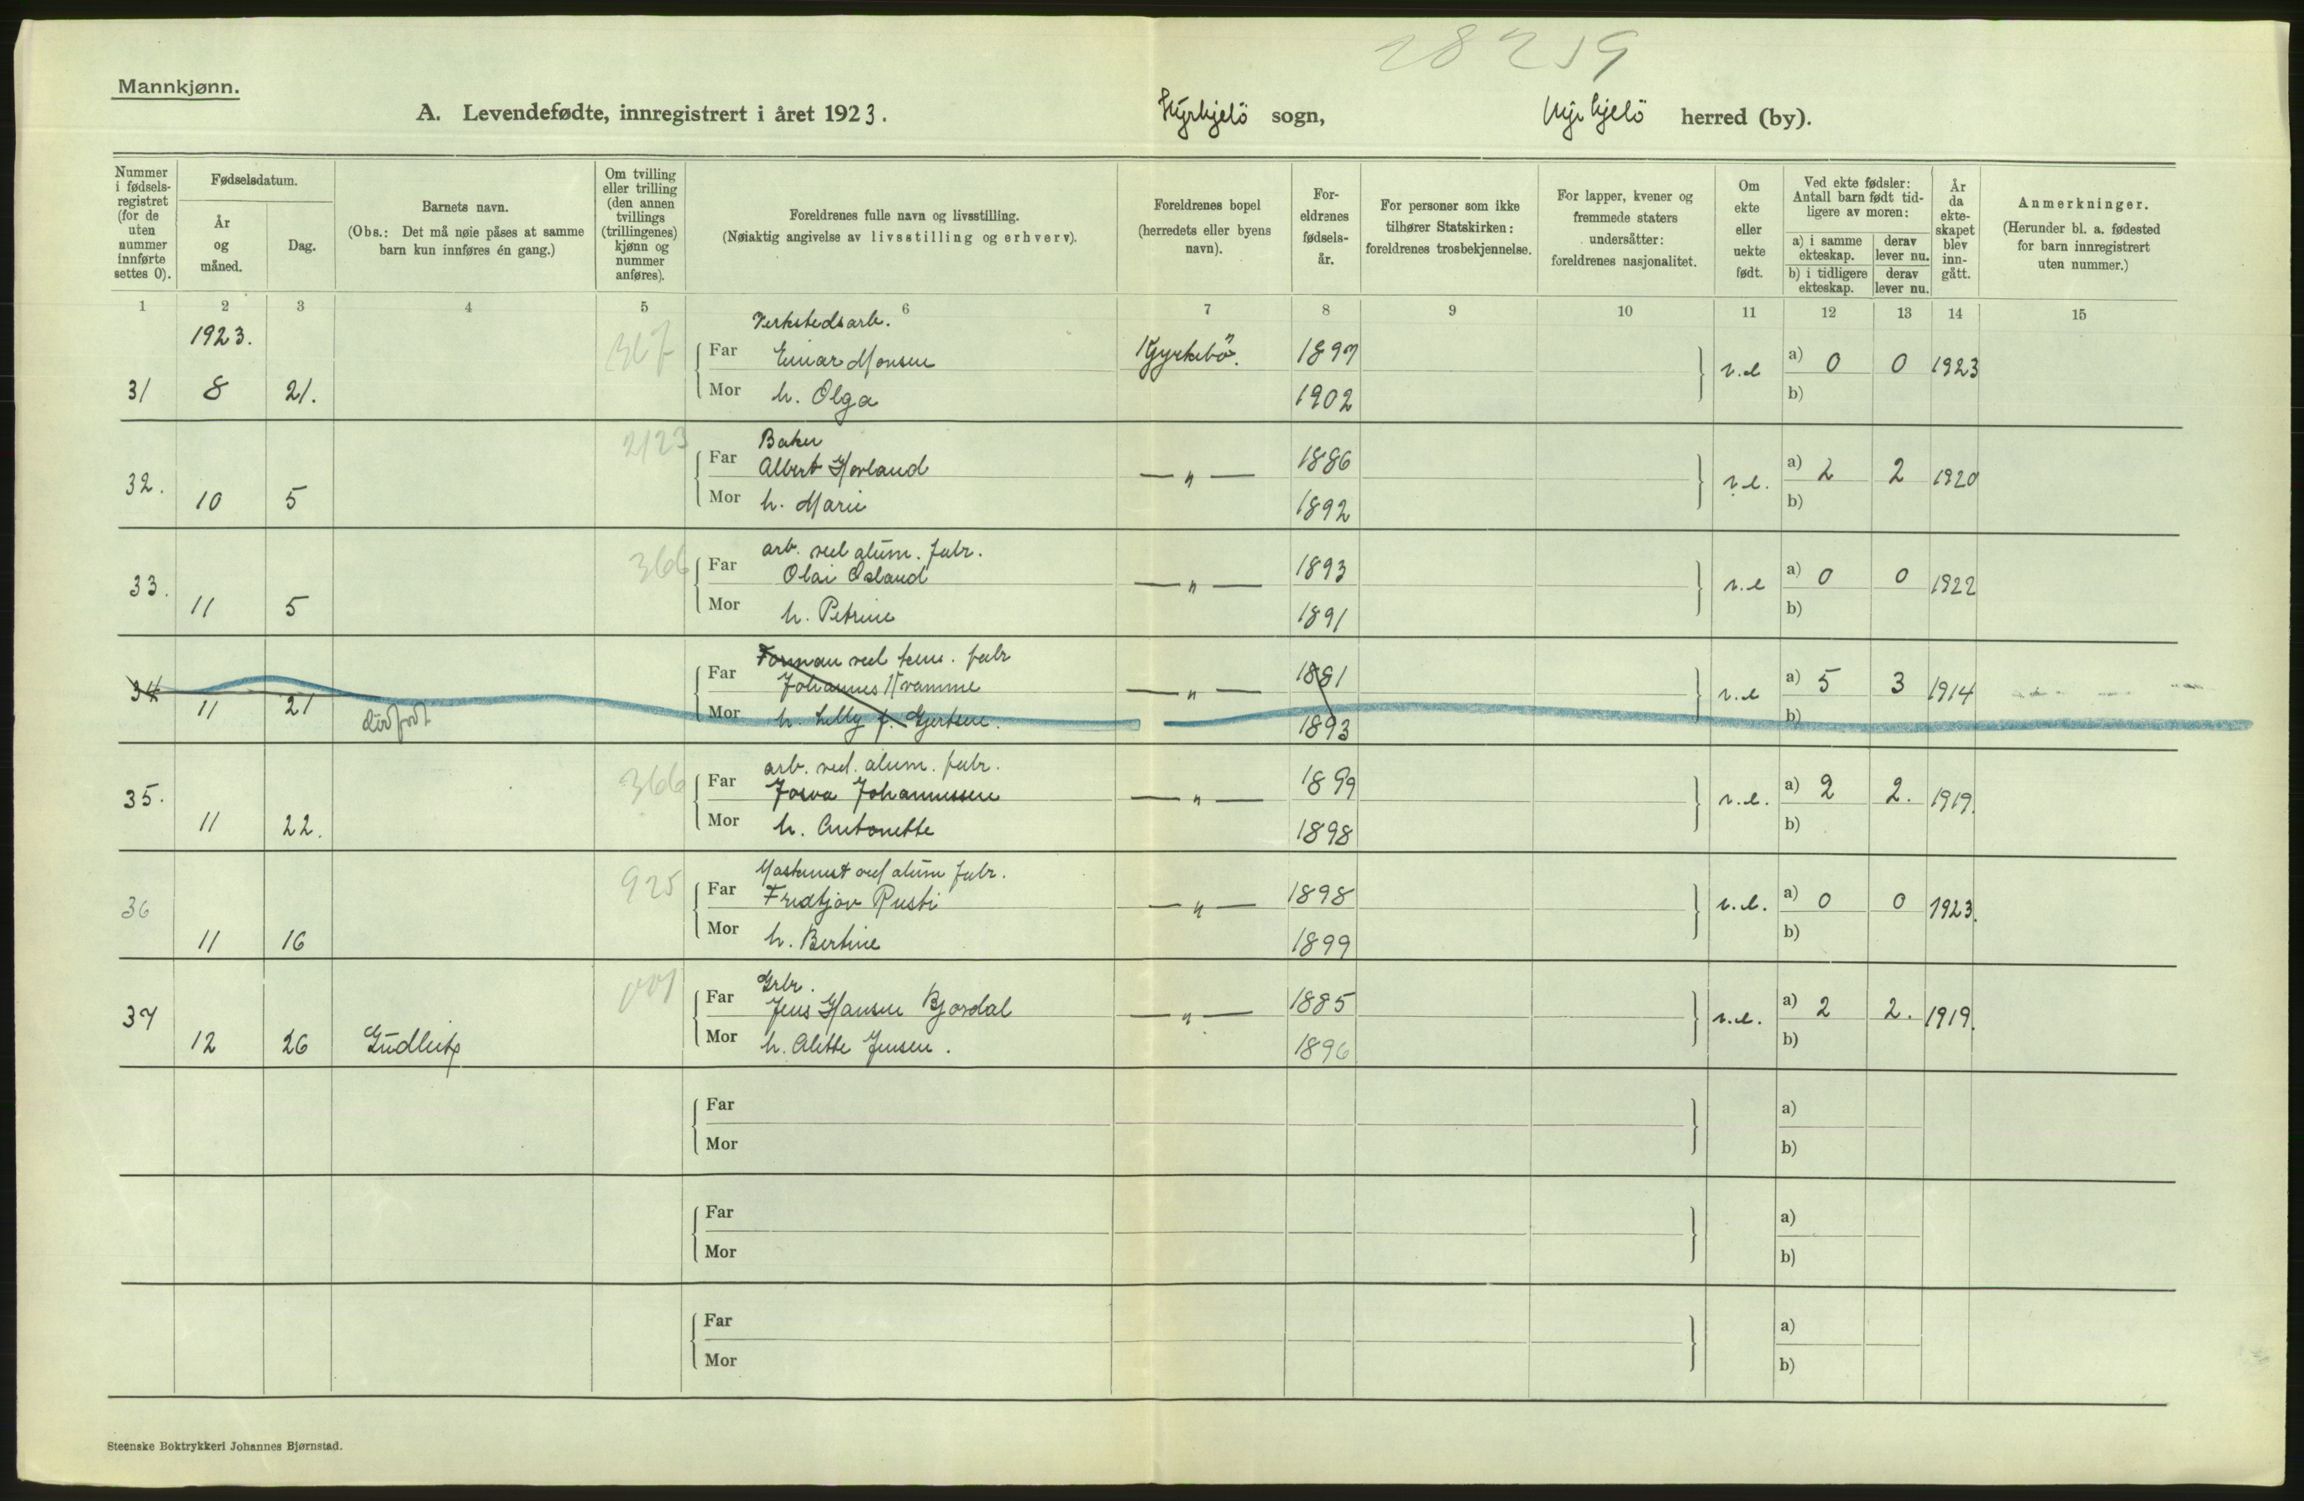 28219
Mannkjønn.
A. Levendefødte, innregistrert i året 1923. Kyrkjebö sogn, Kyrkjebö herred (by).
Nummer i fødsels-registret (for de uten nummer innførte settes 0).
Fødselsdatum.
År og måned.
Dag.
Barnets navn.
(Obs.: Det må nøie påses at samme barn kun innføres én gang.)
Om tvilling eller trilling (den annen tvillings (trillingenes) kjønn og nummer anføres).
Foreldrenes fulle navn og livsstilling.
(Nøiaktig angivelse av livsstilling og erhverv).
Foreldrenes bopel (herredets eller byens navn).
For-eldrenes fødsels-år.
For personer som ikke tilhører Statskirken: foreldrenes trosbekjennelse.
For lapper, kvener og fremmede staters undersåtter: foreldrenes nasjonalitet.
Om ekte eller uekte født.
Ved ekte fødsler: Antall barn født tid-ligere av moren:
a) i samme ekteskap.
derav lever nu.
b) i tidligere ekteskap.
derav lever nu.
År da ekte-skapet blev inn-gått.
Anmerkninger.
(Herunder bl. a. fødested for barn innregistrert uten nummer.)
1 2 3 4 5 6 7 8 9 10 11 12 13 14 15
1923.
367
Verkstedsarb.
Far Einar Monsen Kyrkebö. 1897
31 8 21. Mor h. Olga 1902 v.e a) 0 0 1923
b)
2123
Baker
Far Albert Hovland — " — 1886
32. 10 5 Mor h. Marie 1892 v.e. a) 2 2 1920
b)
366
arb. ved alum. fabr.
Far Olai Osland — " — 1893
33. 11 5 Mor h. Petrine 1891 v.e a) 0 0 1922
b)
Forman ved fabr
Far Johannes Kvamme — " — 1881
34 11 21 dødfødt Mor h. Lilly f. Gjertsen. 1893 v.e a) 5 3 1914
b)
366
arb. ved. alum. fabr.
Far Josva Johannessen — " — 1899
35. 11 22. Mor h. Antonette 1898 v.e. a) 2 2. 1919.
b)
925
Maskinist ved alum fabr.
Far Fridtjov Rusti — " — 1898
36 11 16 Mor h. Bertine 1899 v.e. a) 0 0 1923.
b)
001
Grbr.
Far Jens Hansen Bjordal — " — 1885
37 12 26 Gudleif Mor h. Alette Jensen. 1896 v.e. a) 2 2. 1919.
b)
Far
Mor
a)
b)
Far
Mor
a)
b)
Far
Mor
a)
b)
Steenske Boktrykkeri Johannes Bjørnstad.